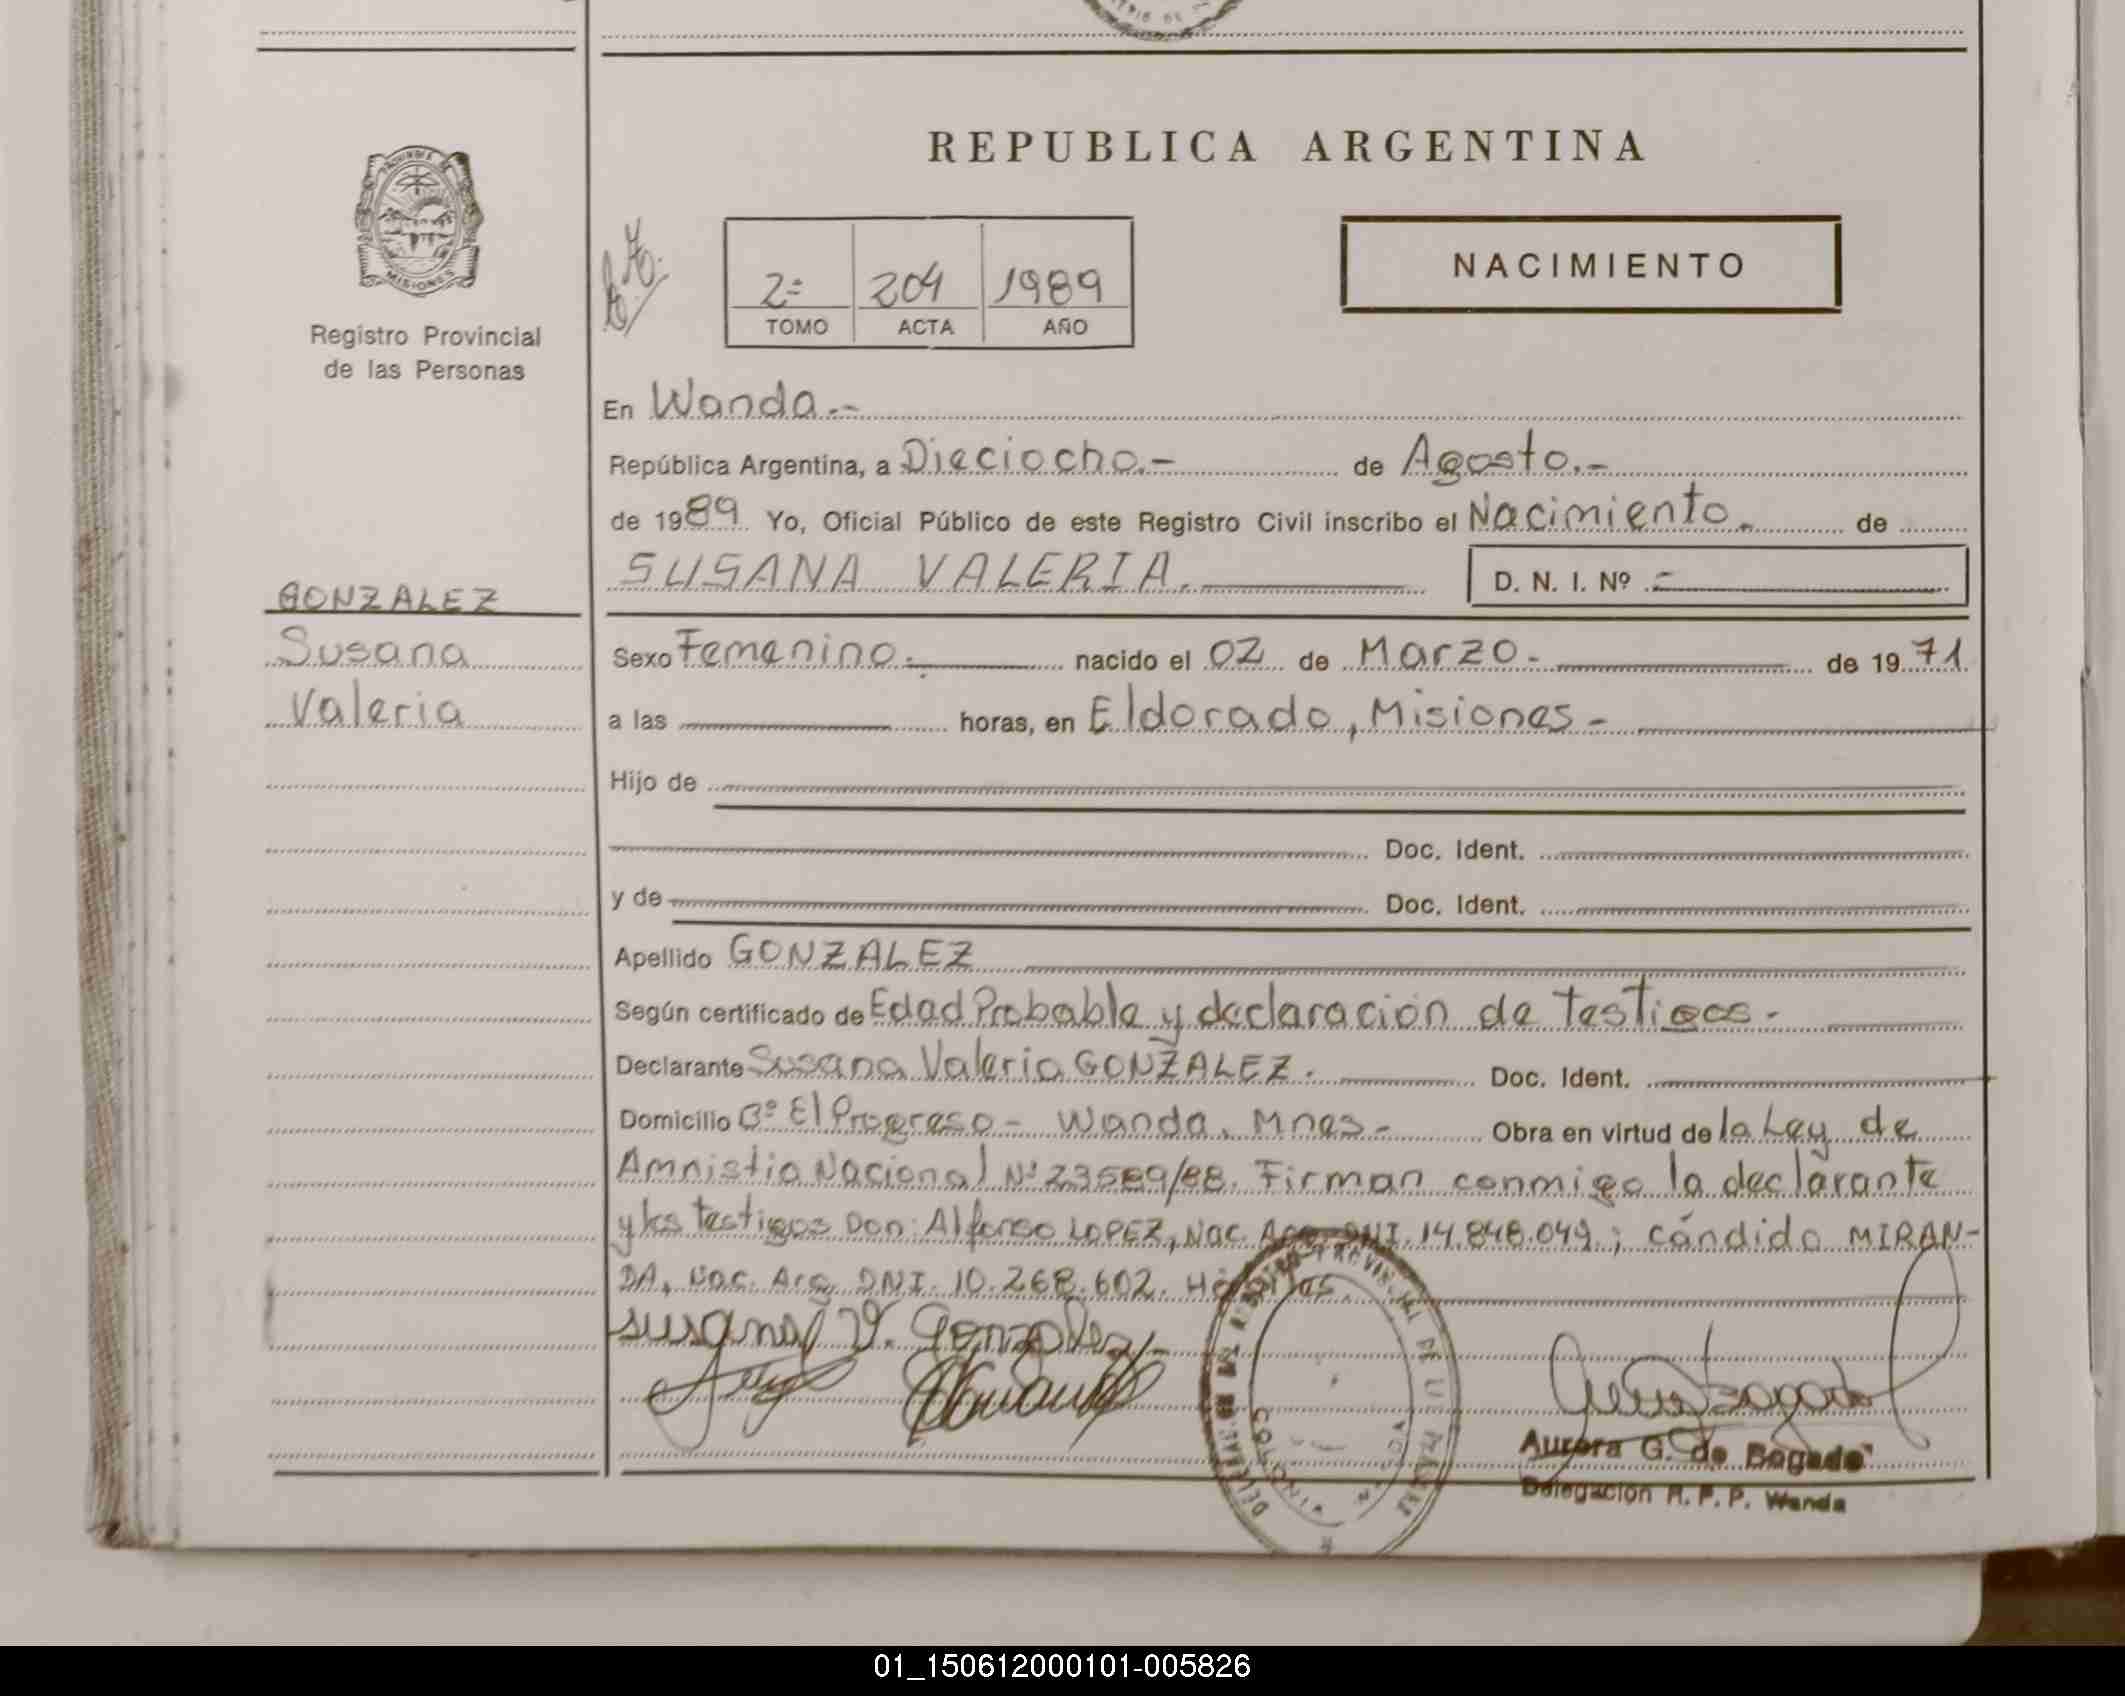 REPUBLICA ARGENTINA
PROVINCIA DE
MISIONES
Registro Provincial
de las Personas
2º 204 1989
TOMO ACTA AÑO
NACIMIENTO
En Wanda.-
República Argentina, a Dieciocho.- de Agosto.-
de 1989 Yo, Oficial Público de este Registro Civil inscribo el Nacimiento. de
SUSANA VALERIA. D. N. I. Nº -
GONZALEZ
Susana
Valeria
Sexo Femenino. nacido el 02 de Marzo. de 1971
a las horas, en Eldorado, Misiones-
Hijo de
Doc. Ident.
y de Doc. Ident.
Apellido GONZALEZ
Según certificado de Edad Probable y declaración de testigos.
Declarante Susana Valeria GONZALEZ. Doc. Ident.
Domicilio Bº El Progreso - Wanda. Mnes- Obra en virtud de la Ley de
Amnistia Nacional Nº 23589/88. Firman conmigo la declarante
y los testigos Don: Alfonso LOPEZ, Nac. Arg. DNI. 14.848.049.; cándido MIRAN-
DA, Nac. Arg. DNI. 10.268.602.
Susana V. Gonzalez
Aurora G. de Bogado
Delegacion R. P. P. Wanda
01_150612000101-005826